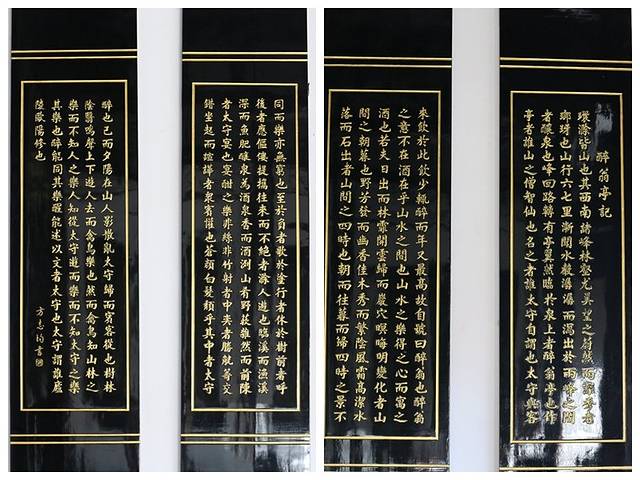 醉翁亭記
環滁皆山也其西南諸峰林壑尤美望之蔚然而深秀者
瑯琊也山行六七里漸聞水聲潺潺而瀉出於兩峰之間
者釀泉也峰回路轉有亭翼然臨於泉上者醉翁亭也作
亭者誰山之僧智仙也名之者誰太守自謂也太守與客
來飲於此飲少輒醉而年又最高故自號曰醉翁也醉翁
之意不在酒在乎山水之間也山水之樂得之心而寓之
酒也若夫日出而林霏開雲歸而巖穴暝晦明變化者山
間之朝暮也野芳發而幽香佳木秀而繁陰風霜高潔水
落而石出者山間之四時也朝而往暮而歸四時之景不
同而樂亦無窮也至於負者歌於塗行者休於樹前者呼
後者應傴僂提攜往來而不絕者滁人遊也臨溪而漁溪
深而魚肥釀泉為酒泉香而酒洌山肴野蔌雜然而前陳
者太守宴也宴酣之樂非絲非竹射者中奕者勝觥籌交
錯坐起而諠譁者衆賓懽也蒼顏白髮頹乎其中者太守
醉也已而夕陽在山人影散亂太守歸而賓客從也樹林
陰翳鳴聲上下遊人去而禽鳥樂也然而禽鳥知山林之
樂而不知人之樂人知從太守遊而樂而不知太守之樂
其樂也醉能同其樂醒能述以文者太守也太守謂誰廬
陵歐陽修也
方志恂書